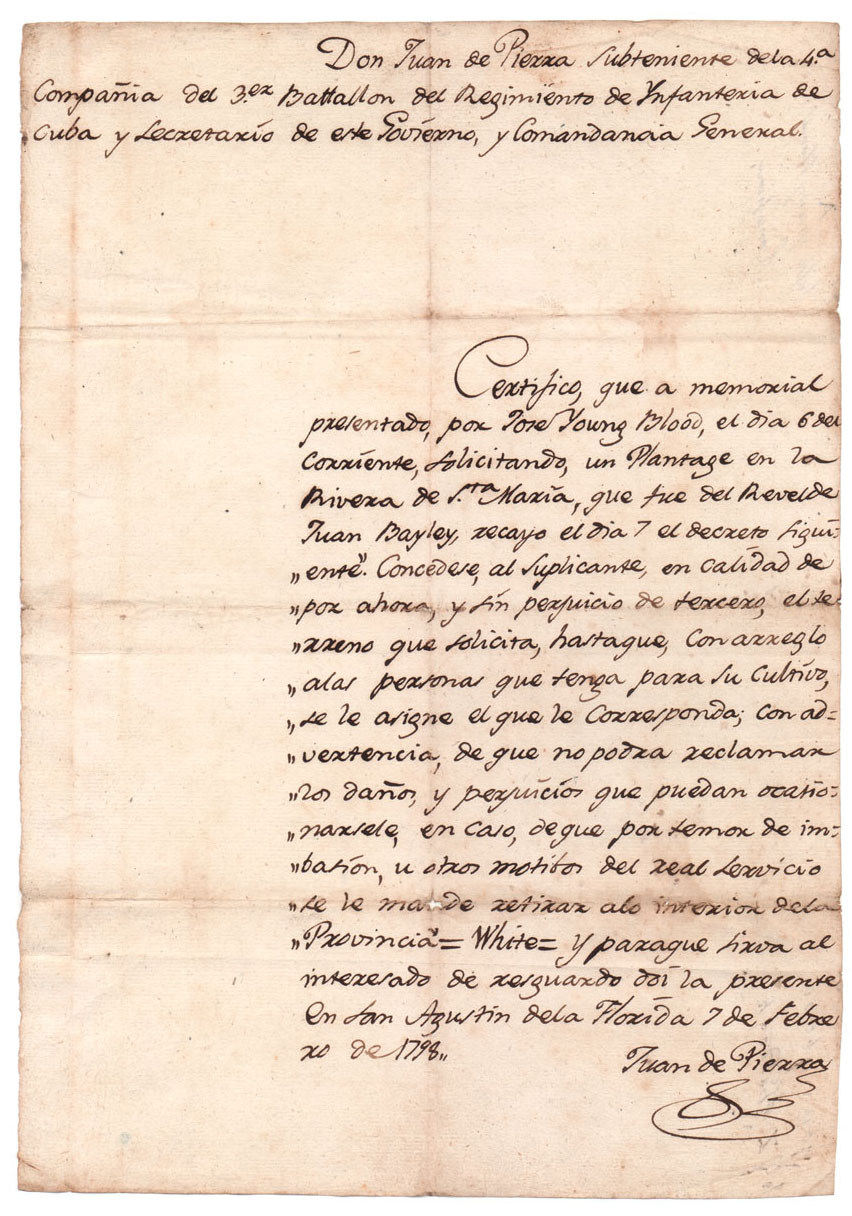 Don Juan de Pierra Subteniente dela 4.a
Compañia del 3.er Battallon del Regimiento de Ynfanteria de
Cuba y Secretario de este Govierno, y Comandancia General.
Certifico, que a memorial
presentado, por José Young Blood, el dia 6 del
Corriente, solicitando, un Plantage en la
Rivera de S.ta María, que fue del Revelde
Juan Bayley, recayo el dia 7 el decreto sigui-
„ente". Concedese, al Suplicante, en calidad de
„por ahora, y sin perjuicio de tercero, el te-
„rreno que solicita, hastaque, con arreglo
„alas personas que tenga para su Cultivo,
„se le asigne el que le Corresponda; con ad=
„vertencia, de que no podra reclamar
„los daños, y perjuicios que puedan ocatio-
„narsele, en caso, deque por temor de im-
„batión, u otros motibos del real servicio
„se le mande retirar alo interior dela
„Provincia"= White= y paraque sirva al
interesado de resguardo doi la presente
En San Agustin dela Florida 7 de Febre
ro de 1798„
Juan de Pierra